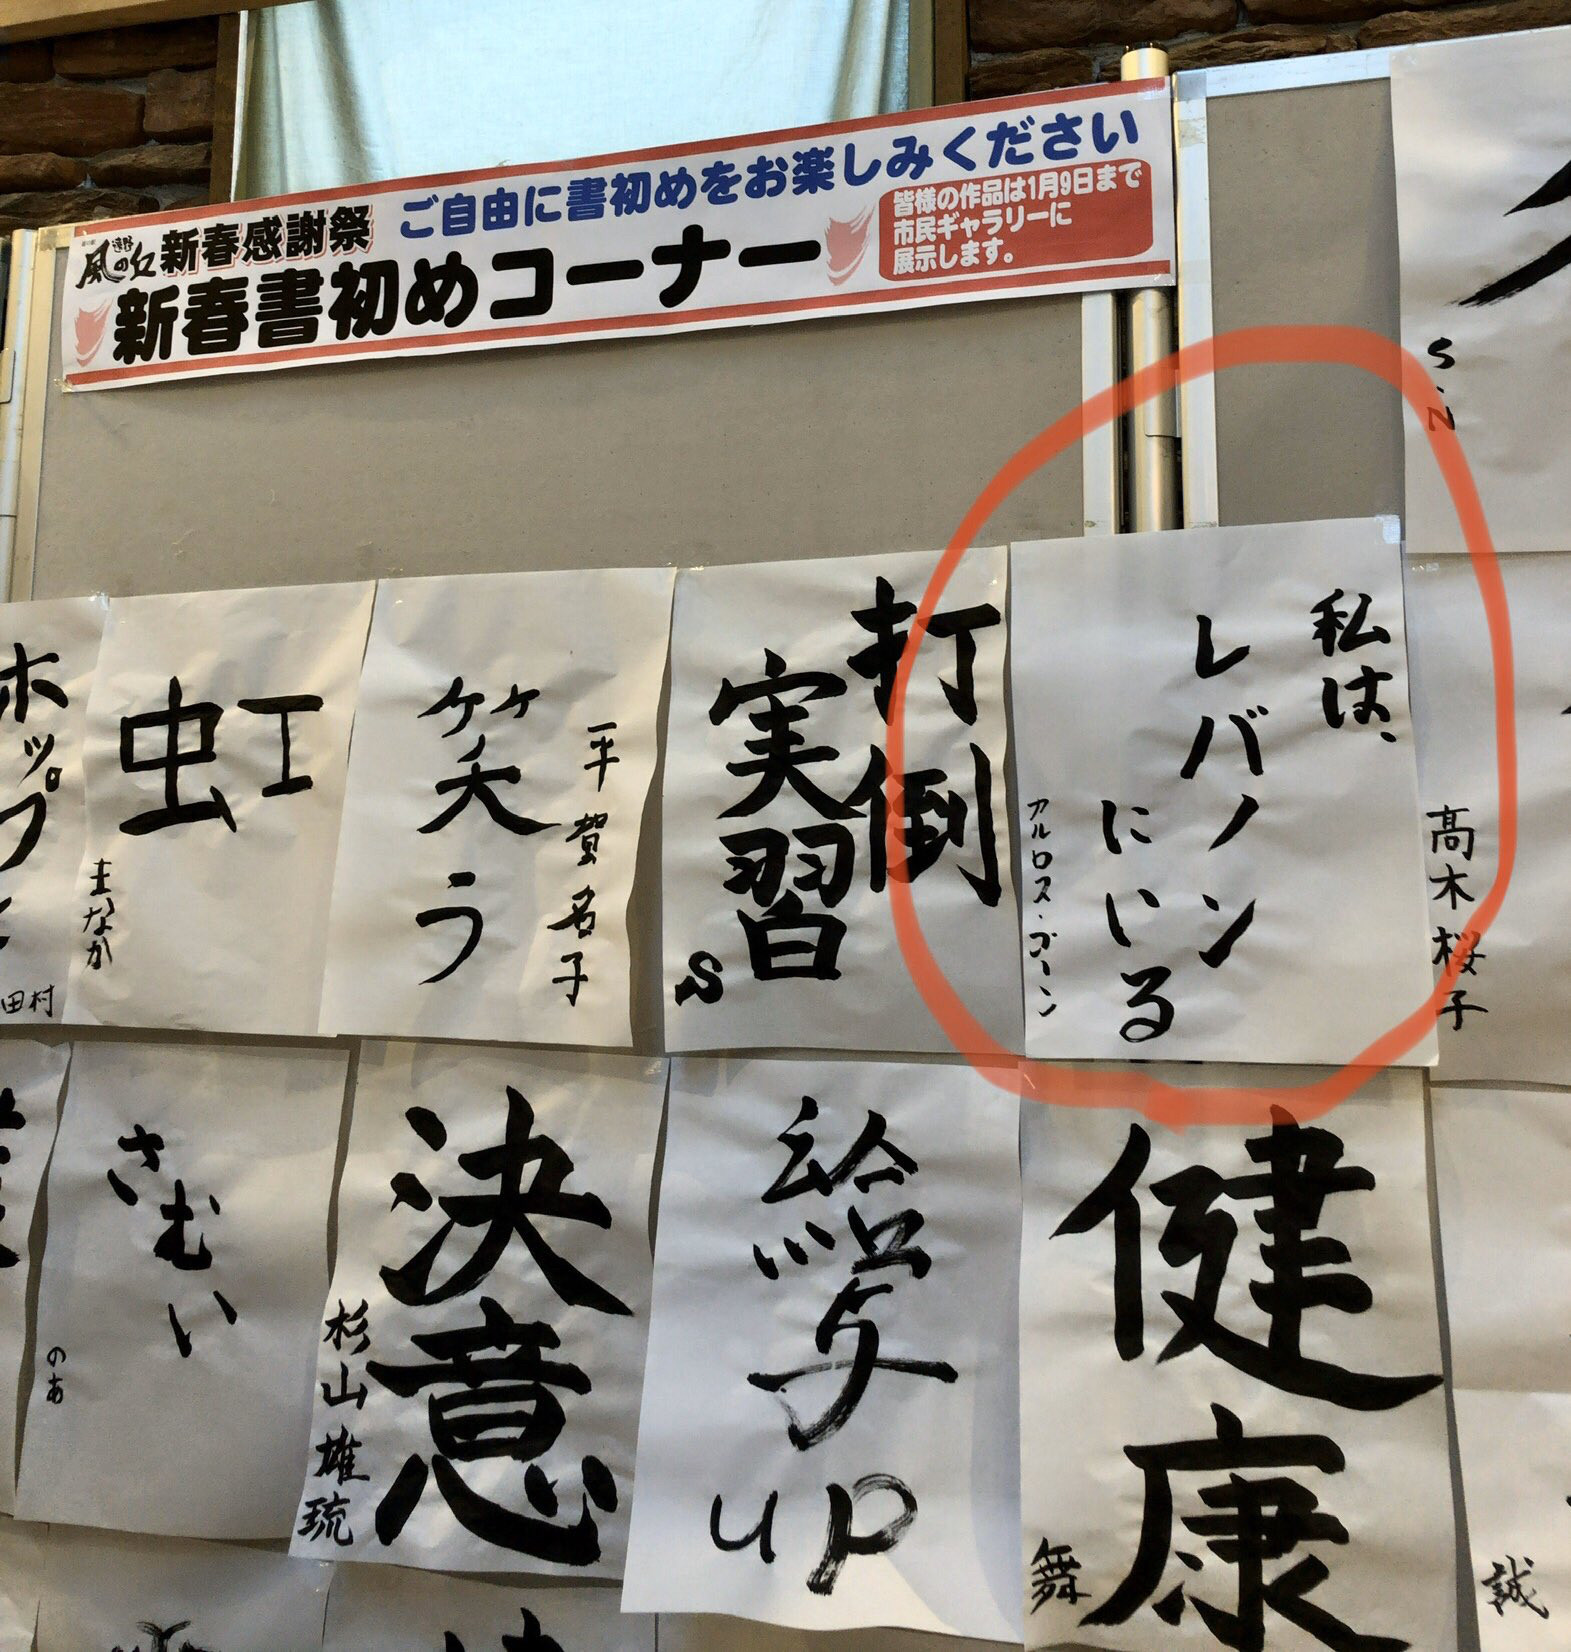 遠野
風の丘
新春感謝祭
ご自由に書初めをお楽しみください
新春書初めコーナー
皆様の作品は1月9日まで
市民ギャラリーに
展示します。
S.N
私は、
レバノン
にいる
アルロス・ゴーン
打倒
実習
S
平賀名子
笑う
虹
まなか
ホップ
田村
高木桜子
健康
舞
給与
up
決意
杉山雄琉
さむい
のあ
誠